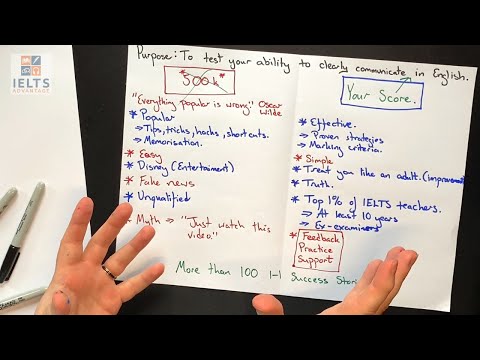 IELTS
ADVANTAGE
Purpose: To test your ability to clearly communicate in English.
*500k*
"Everything popular is wrong." Oscar Wilde
* Popular
→ Tips, tricks, hacks, shortcuts.
→ Memorisation.
* Easy
* Disney (Entertaiment)
* Fake news
* Unqualified
* Myth ⇒ "Just watch this video."
Your Score.
* Effective.
→ Proven strategies
→ Marking criteria.
* Simple
* Treat you like an adult. (Improvement)
* Truth.
* Top 1% of IELTS teachers.
⇒ At least 10 years
⇒ Ex-examiners
* Feedback
Practice
Support
More than 100 1-1 Success